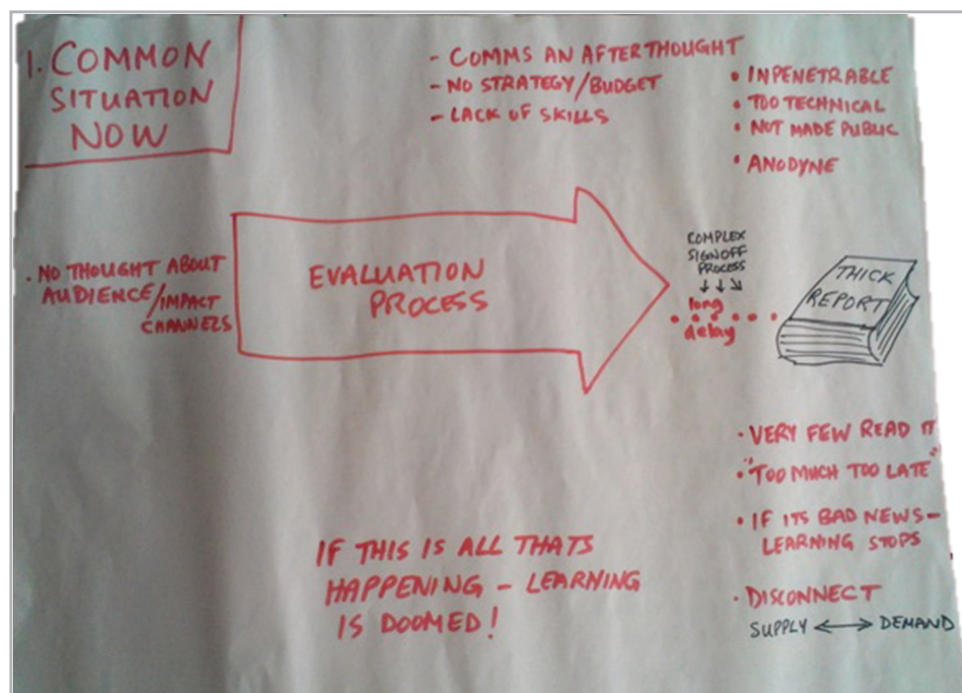 1. COMMON
SITUATION
NOW
- COMMS AN AFTERTHOUGHT
- NO STRATEGY/BUDGET
- LACK OF SKILLS
• INPENETRABLE
• TOO TECHNICAL
• NOT MADE PUBLIC
• ANODYNE
• NO THOUGHT ABOUT
AUDIENCE/IMPACT
CHANNELS
EVALUATION
PROCESS
COMPLEX
SIGNOFF
PROCESS
↓↓↘
long
delay
THICK
REPORT
• VERY FEW READ IT
• "TOO MUCH TOO LATE"
• IF ITS BAD NEWS-
LEARNING STOPS
• DISCONNECT
SUPPLY ↔ DEMAND
IF THIS IS ALL THATS
HAPPENING - LEARNING
IS DOOMED!